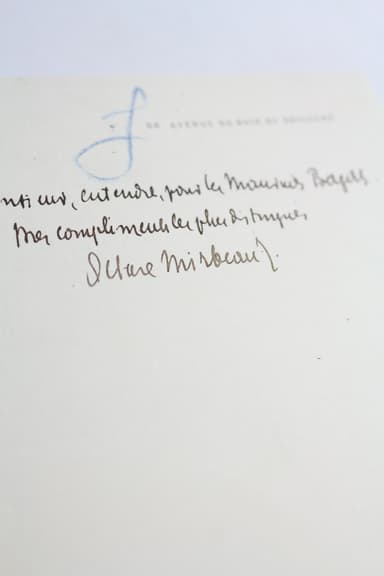 84 AVENUE DU BOIS DU BOULOGNE
entendre, pour les Mauvais Bergers.
Mes compliments les plus distingués
Octave Mirbeau